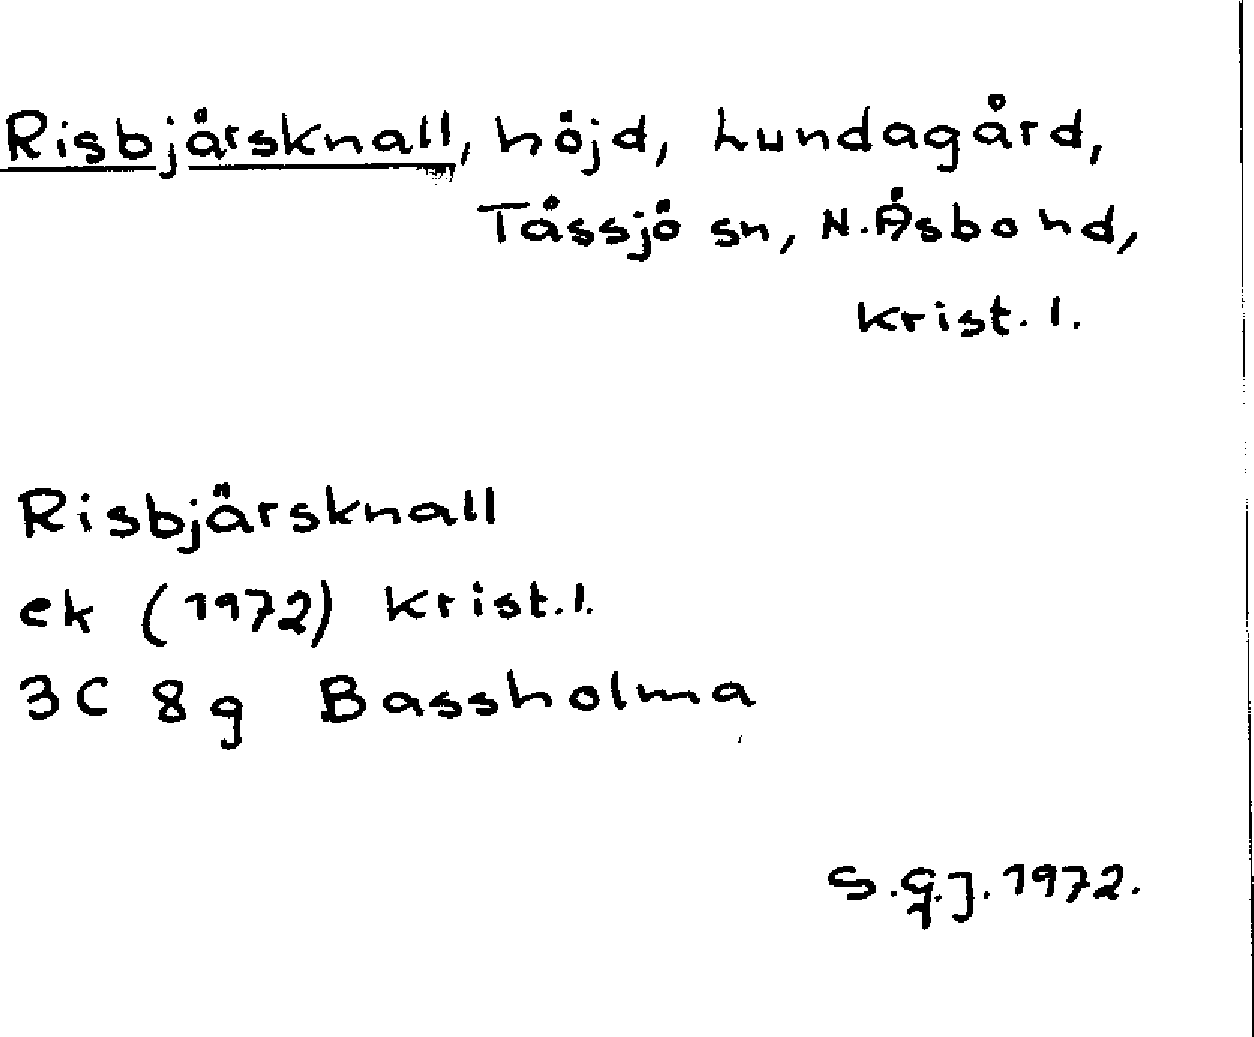 Risbjärsknall, höjd, Lundagård,
Tåssjö sn, N.Åsbo hd,
Krist. l.
Risbjärsknall
ek (1972) Krist.l.
3C 8g Bassholma
S.G.J. 1972.